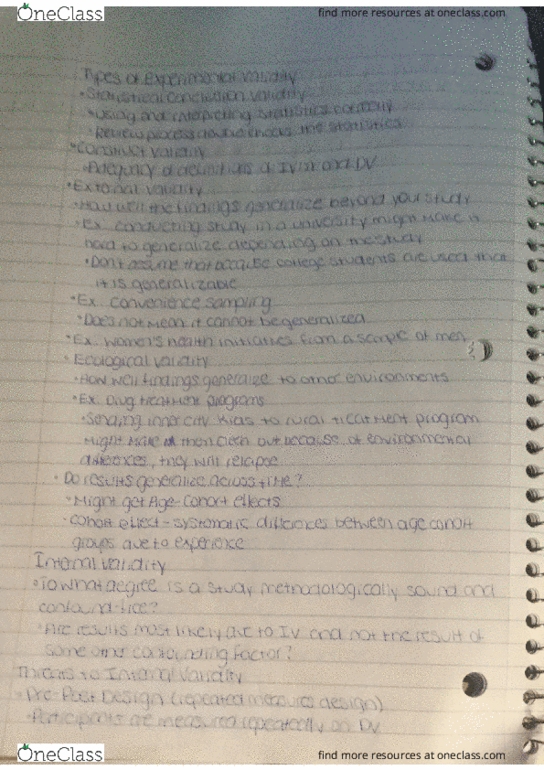 OneClass
find more resources at oneclass.com
Types of Experimental Validity
• Statistical Conclusion Validity
• Using and interpreting statistics correctly
• Review process double checks the statistics
• Construct Validity
• Adequacy of definitions of IV(s) and DV
• External Validity
• How well the findings generalize beyond your study
• Ex. conducting study in a university might make it
hard to generalize depending on the study
• Don't assume that because college students are used that
it is generalizable
• Ex. Convenience sampling
• Does not mean it cannot be generalized
• Ex. Women's health initiatives from a sample of men
• Ecological Validity
• How well findings generalize to other environments
• Ex. Drug treatment programs
• Sending inner city kids to rural treatment program
might make them clean but because of environmental
differences, they will relapse
• Do results generalize across time?
• Might get Age-Cohort effects
• Cohort effect - systematic differences between age cohort
groups due to experience
Internal Validity
• To what degree is a study methodologically sound and
confound-free?
• Are results most likely due to IV and not the result of
some other confounding factor?
Threats to Internal Validity
• Pre-Post Design (repeated measures design)
• Participants are measured repeatedly on DV
OneClass
find more resources at oneclass.com